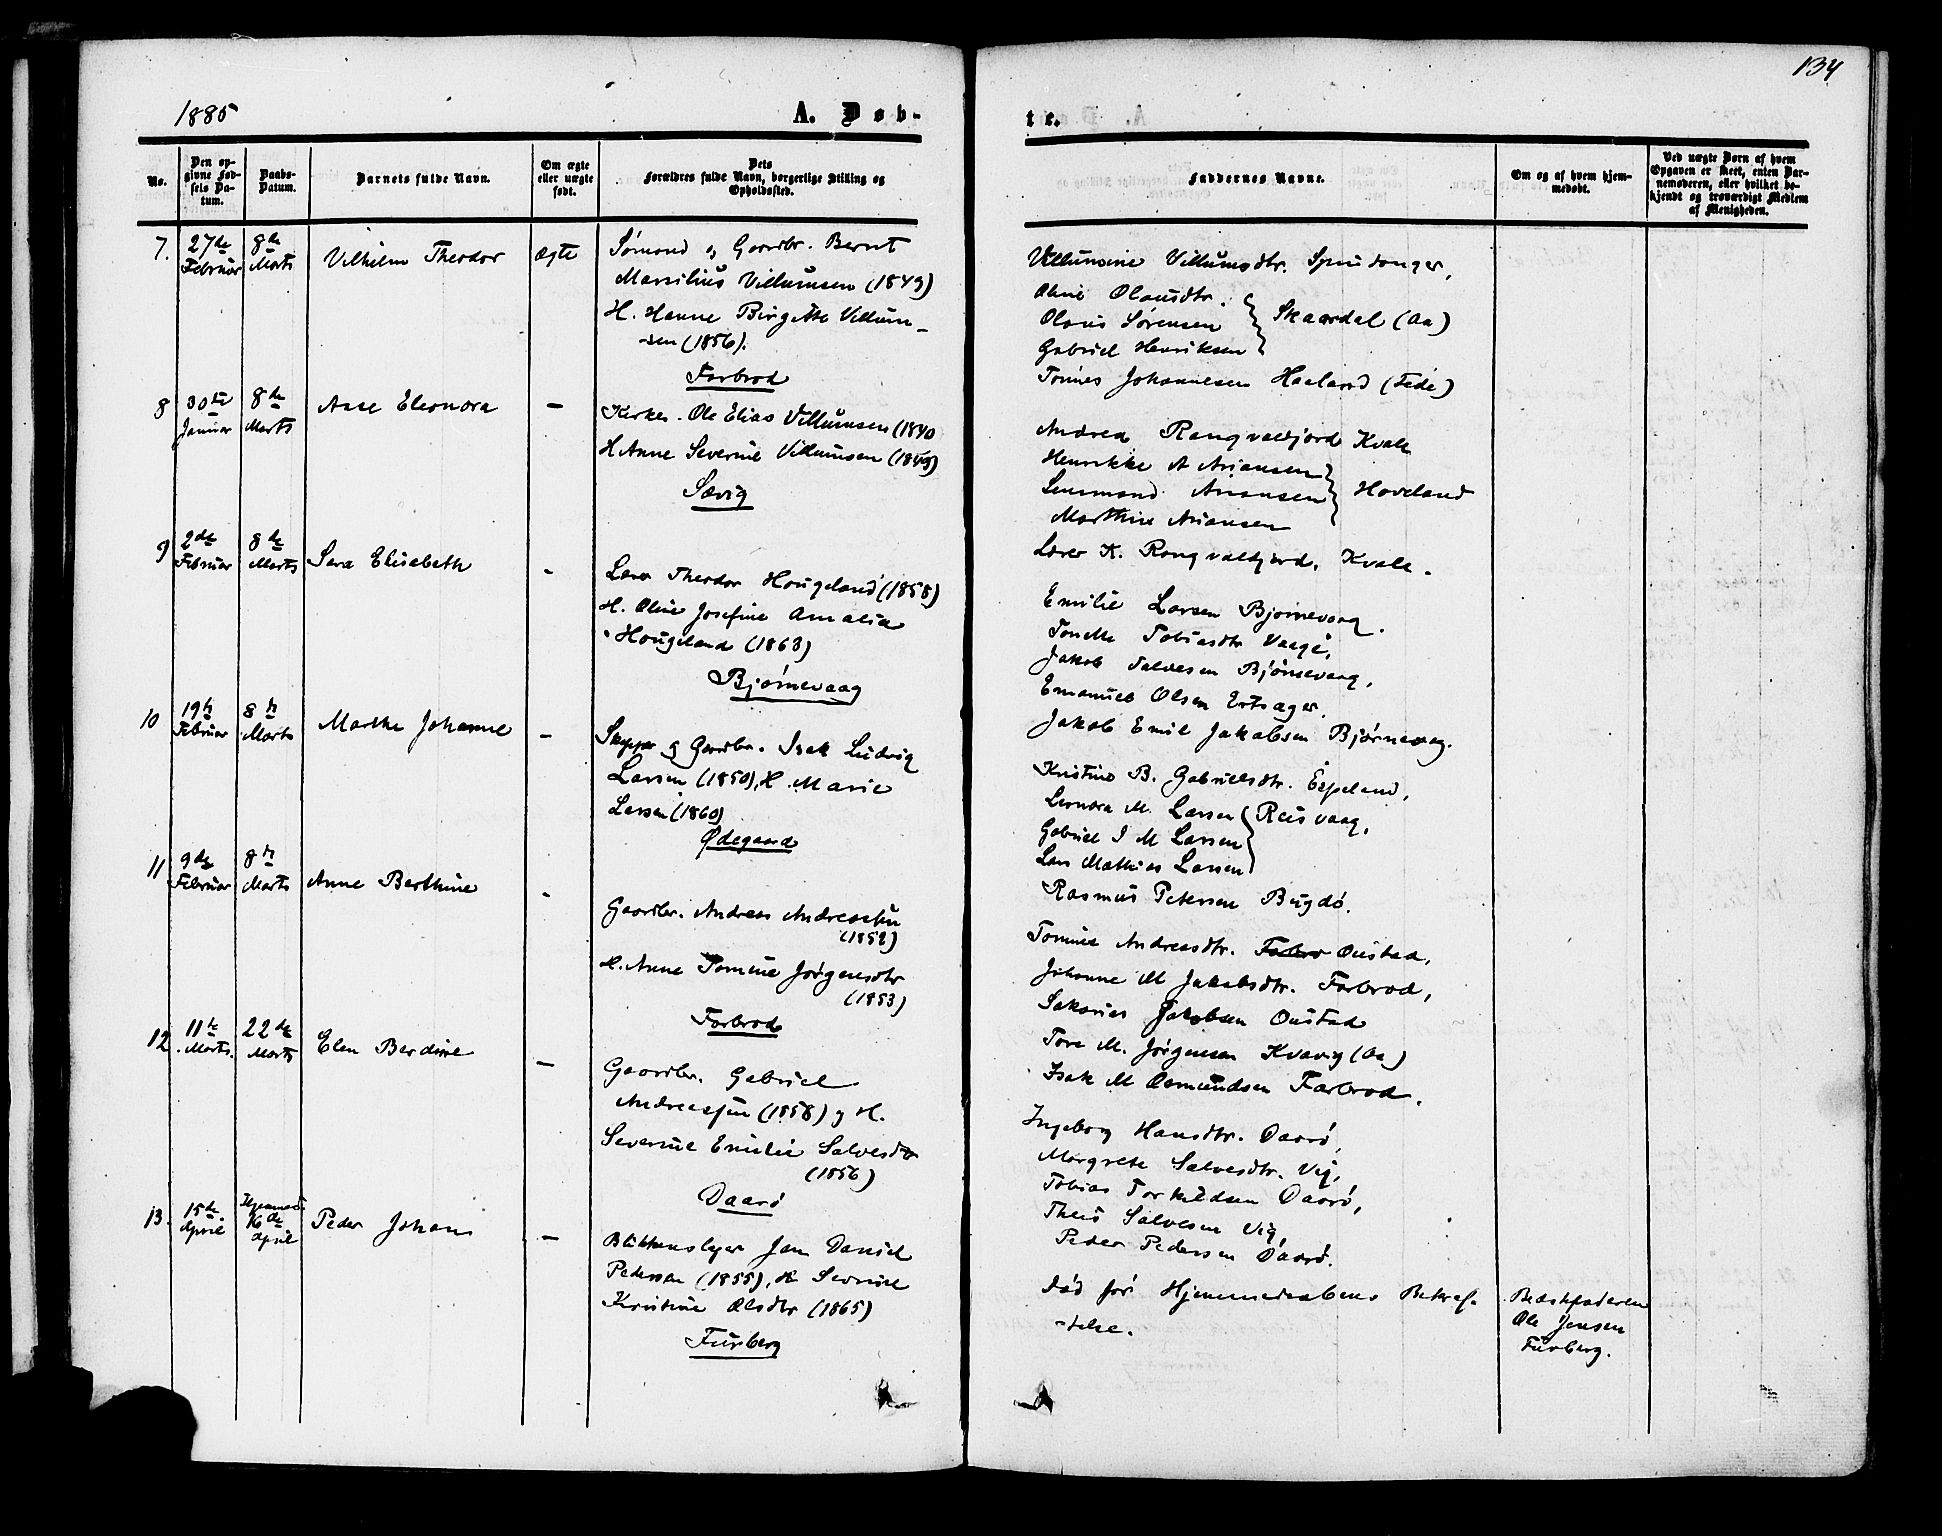 134
1885
A. Døb-
te.
No.
Den op-
givne Fød-
sels Da-
tum.
Daabs-
Datum.
Barnets fulde Navn.
Om ægte
eller uægte
født.
Dets
Forældres fulde Navn, borgerlige Stilling og
Opholdssted.
Faddernes Navne.
Om og af hvem hjem-
medøbt.
Ved uægte Børn af hvem
Opgaven er skeet, enten Bar-
nemoderen, eller hvilket be-
kjendt og troværdigt Medlem
af Menigheden.
7.
27de
Februar
8de
Marts
Vilhelm Theodor
Ægte
Sømand og Gaardbr. Bernt
Marsilius Villumsen (1849)
H. Hanne Birgitte Villum-
sen (1856).
Farbrod
Villumine Villumsdtr.
Oline Olausdtr.
Olaus Sørensen
Gabriel Henriksen
Skaardal (Aa)
Tønnes Johannesen Haaland (Fede)
8
30te
Januar
8de
Marts
Aase Eleonora
—
Kirkes. Ole Elias Villumsen (1840
H. Anne Severine Villumsen (1849)
Sævig
Andrea Rangvaldfjord Kvale
Henrikke A Arians​en
Arians​en
Marthine Ariansen
Hoveland
Lærer K. Rangvaldfjord. Kvale.
9
2de
Februar
8de
Marts
Sara Elisabeth
-
Lærer Theodor Hougeland (1858)
H. Oline Josefine Amalia
Hougeland (1863)
Bjørnevaag
Emilie Larsen Bjørnevaag.
Tonette Tobiasdtr Vaage,
Jakob Salvesen Bjørnevaag,
Emanuel Olsen
Jakob Emil Jakobsen Bjørnevaag.
10
19de
Februar
8de
Marts
Marthe Johanne
—
Skipper og Gaardbr. Isak Ludvig
Larsen (1850), H. Marie
Larsen (1860)
Ødegaard
Kristine B. Gabrielsdtr. Espeland,
Lernora M. Larsen
Gabriel I M Larsen
Lars Mathias Larsen
Reisvaag,
Rasmus Petersen Bugdø.
11
9de
Februar
8de
Marts
Anne Berthine
-
Gaardbr. Andreas Andreassen
(1852)
H. Anne Tomine Jørgensdtr
(1853)
Farbrod
Tomine Andreasdtr. Oustad,
Johanne M Jakobsdtr. Farbrod,
Sakarias Jakobsen Oustad
Tore M. Jørgensen Kvavig (Aa)
Isak M Osmundsen Farbrod.
12
11te
Marts.
22de
Marts
Elen Berdine
—
Gaardbr. Gabriel
Andreassen (1858) og H.
Severine Emilie Salvesdtr
(1856)
Daarø
Ingeborg Hansdtr. Daarø,
Margrete Salvesdtr. Vig,
Tobias Torkildsen Daarø,
Theis Salvesen Vig,
Peder Pedersen Daarø.
13.
15de
April
Hjemmed.
16de
April
Peder Johan
—
Blikkenslager Jan Daniel
Pedersen (1855), H. Severine
Kristine Olsdtr (1865)
Furberg
Død før Hjemmedaabens Bekræf-
telse.
Bedstefaderen
Ole Jensen
Furberg.